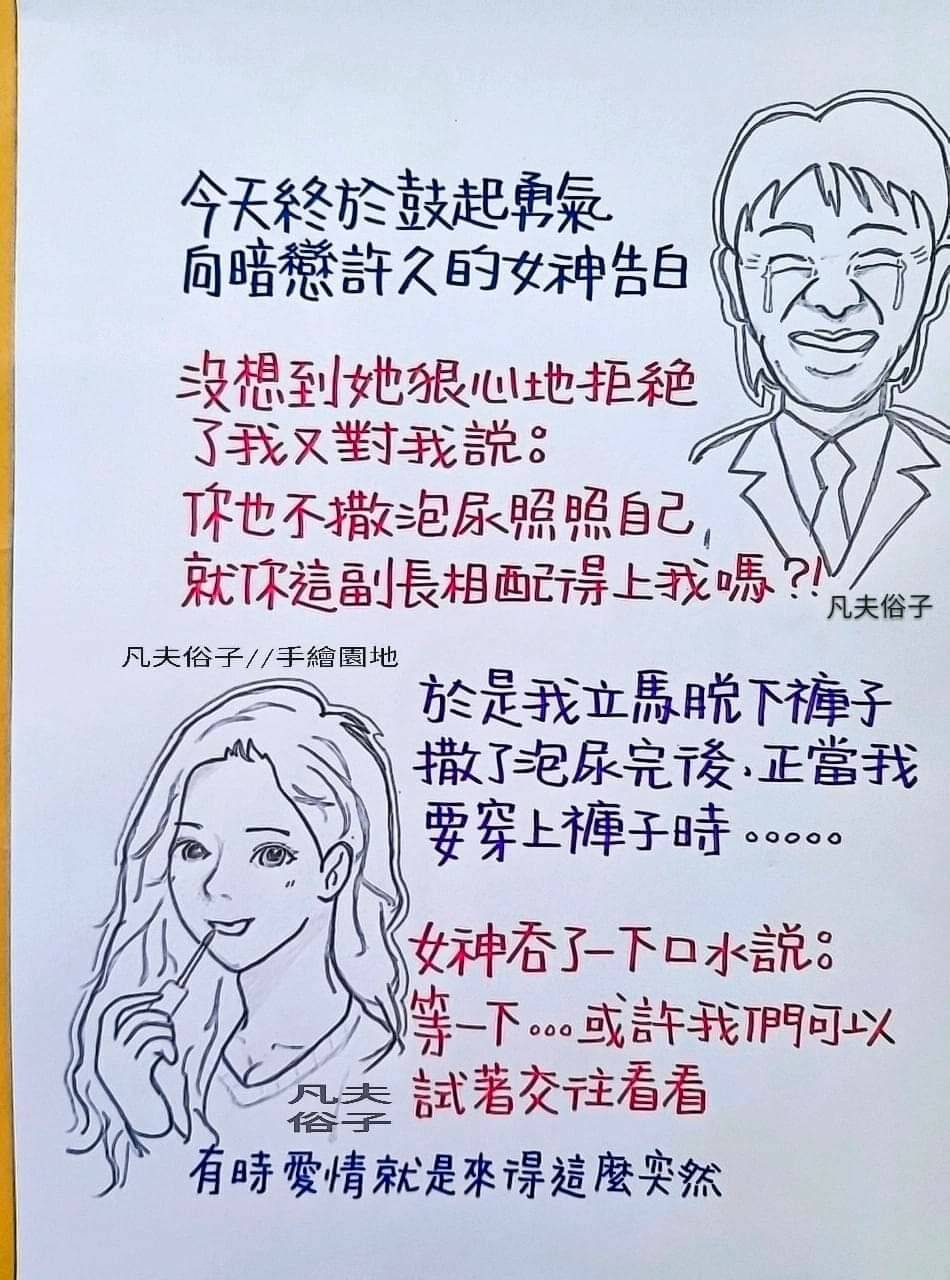 今天終於鼓起勇氣
向暗戀許久的女神告白
沒想到她狠心地拒絕
了我又對我說：
你也不撒泡尿照照自己,
就你這副長相配得上我嗎？！
凡夫俗子
凡夫俗子//手繪園地
於是我立馬脫下褲子
撒了泡尿完後，正當我
要穿上褲子時。。。。。
女神吞了一下口水說：
等一下。。。或許我們可以
試著交往看看
凡夫
俗子
有時愛情就是來得這麼突然